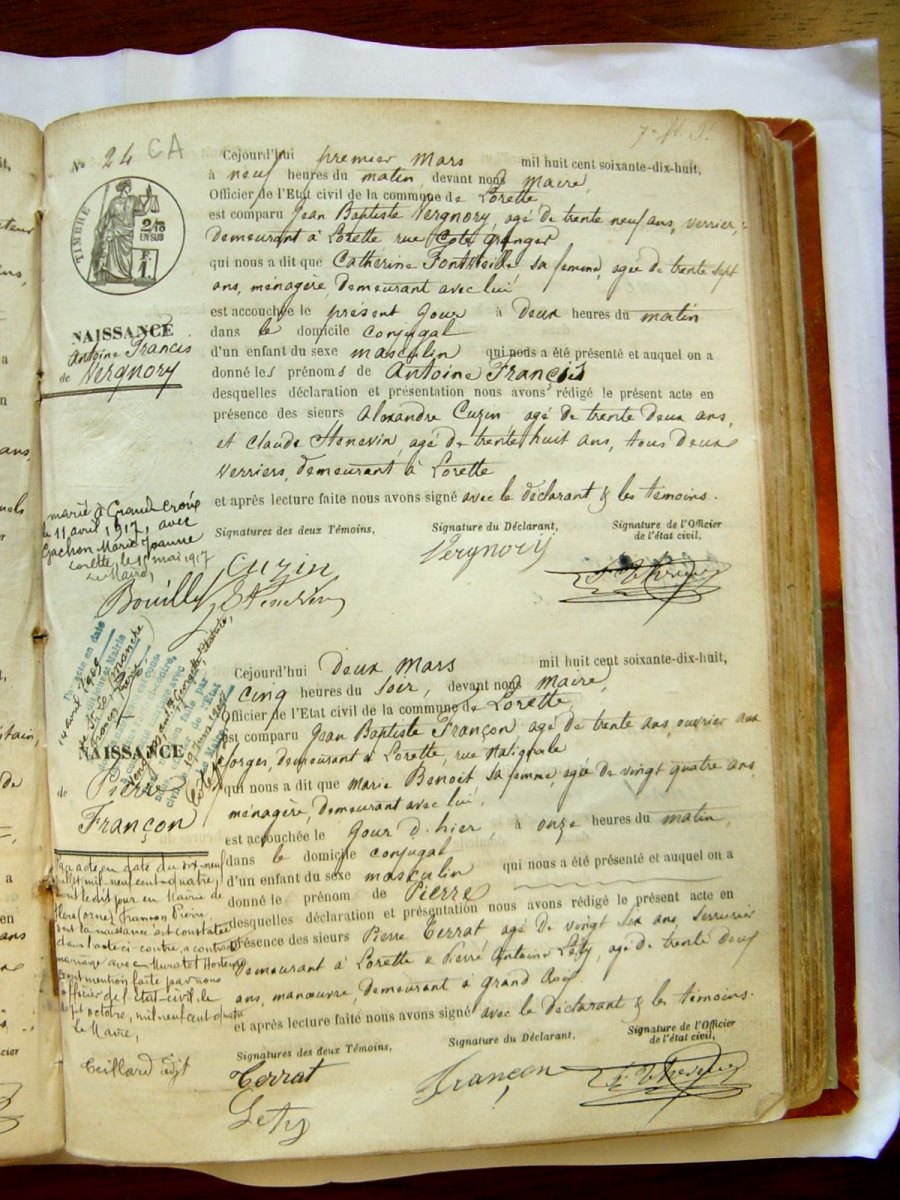 7
N° 24 CA
TIMBRE
2/10
EN SUS
F.
1.
NAISSANCE
Antoine Francis
de Vergnory
Cejourd'hui premier mars mil huit cent soixante-dix-huit,
à neuf heures du matin, devant nous maire,
Officier de l'Etat civil de la commune de Lorette
est comparu Jean Baptiste Vergnory, agé de trente neuf ans, verrier,
demeurant à Lorette rue Coté Granger
qui nous a dit que Catherine sa femme, agée de trente sept
ans, ménagère, demeurant avec lui
est accouchée le présent jour à deux heures du matin
dans le domicile conjugal
d'un enfant du sexe masculin qui nous a été présenté et auquel on a
donné les prénoms de Antoine Francis
desquelles déclaration et présentation nous avons rédigé le présent acte en
présence des sieurs Alexandre Cuzin agé de trente deux ans,
et Claude Henevin, agé de trente huit ans, tous deux
verriers, demeurant à Lorette
et après lecture faite nous avons signé avec le déclarant & les témoins.
marié à Grand Croix
le 11 avril 1917, avec
Gachon Marie Joanne
Lorette, le 15 mai 1917
Le Maire,
Bouilly
Signatures des deux Témoins,
Signature du Déclarant,
Signature de l'Officier
de l'état civil,
Cuzin
Henevin
Vergnory
Cejourd'hui deux mars mil huit cent soixante-dix-huit,
à cinq heures du soir, devant nous maire,
Officier de l'Etat civil de la commune de Lorette,
est comparu Jean Baptiste Françon agé de trente ans, ouvrier aux
forges, demeurant à Lorette, rue Nationale
qui nous a dit que Marie Benoit, sa femme, agée de vingt quatre ans
ménagère, demeurant avec lui,
est accouchée le jour d'hier, à onze heures du matin,
dans le domicile conjugal
d'un enfant du sexe masculin qui nous a été présenté et auquel on a
donné le prénom de Pierre
desquelles déclaration et présentation nous avons rédigé le présent acte en
présence des sieurs Pierre Terrat agé de vingt six ans, serrurier
demeurant à Lorette & Pierre Antoine Lety, agé de trente deux
ans, manœuvre, demeurant à Grand Croix
et après lecture faite nous avons signé avec le déclarant & les témoins.
Par acte en date
14 avril 1909
NAISSANCE
de Pierre
Françon
Par acte en date du dix-neuf
juillet mil-neuf-cent-quatre,
dont ledit jour en Mairie de
Flers (Orne), Françon Pierre
dont la naissance est constatée
dans l'acte ci-contre, a contracté
mariage avec Muratet Hortense
Dont mention faite par nous
officier de l'Etat-civil le
sept octobre, mil neuf cent quatre
Le Maire,
Signatures des deux Témoins,
Signature du Déclarant,
Signature de l'Officier
de l'état civil,
Terrat
Lety
Françon